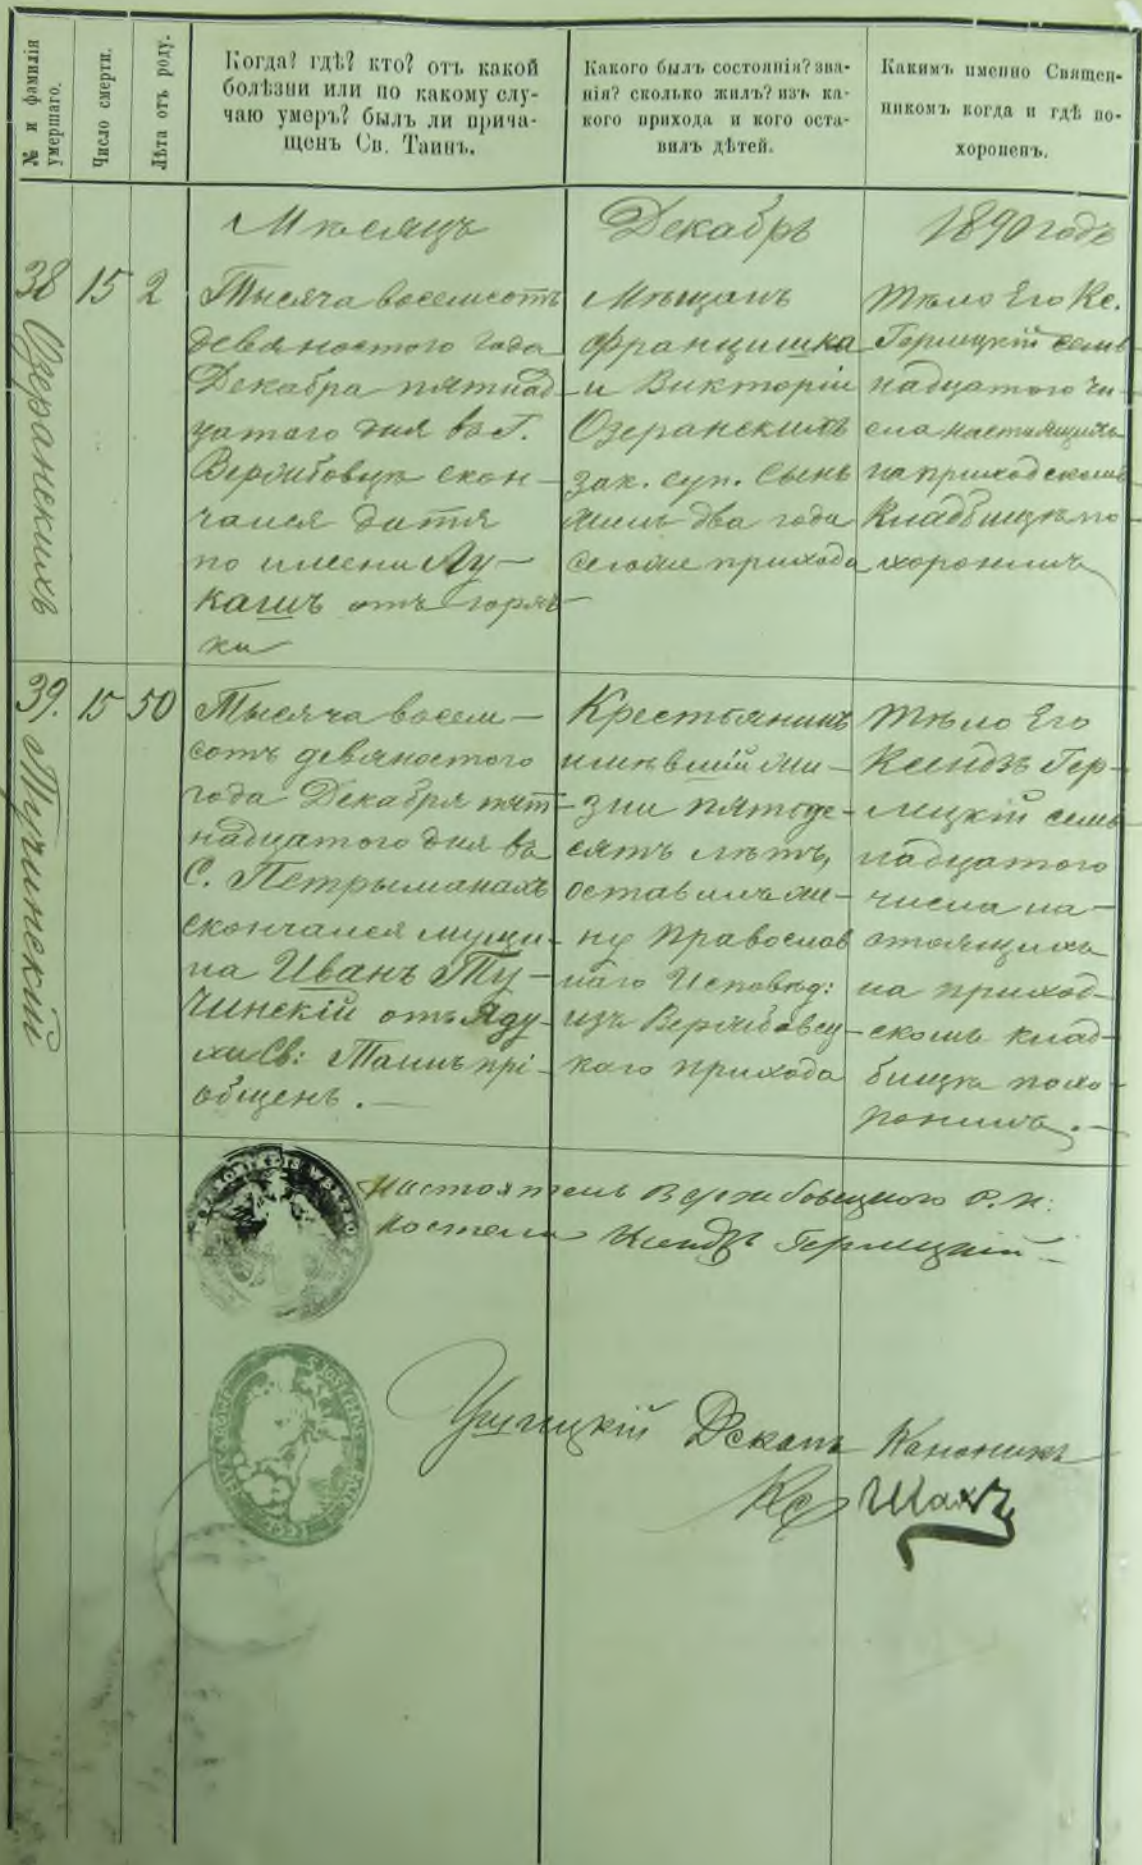 № и фамилія
умершаго.
Число смерти.
Лѣта отъ роду.
Когда? гдѣ? кто? отъ какой
болѣзни или по какому слу-
чаю умеръ? былъ ли прича-
щенъ Св. Таинъ.
Какого былъ состоянія? зва-
нія? сколько жилъ? изъ ка-
кого прихода и кого оста-
вилъ дѣтей.
Какимъ именно Священ-
никомъ когда и гдѣ по-
хороненъ.
Мѣсяцъ Декабрь 1890 годъ
38
Озеранскихъ
15
2
Тысяча восемсотъ
девяностого года
Декабра пятнад
цатаго дня въ Г.
Вержбовцѣ скон-
чался дитя
по имени Лу-
кашъ отъ горяч
ки
Мѣщанъ
Францишка
и Викторіи
Озеранскихъ
зак. суп. Сынъ
жилъ два года
сегоже прихода
Тѣло Его Кс.
Герлицкій семь
надцатого чи-
сла настоящихъ
на приходскомъ
Кладбищѣ по-
хоронилъ
39.
Тучинскій
15
50
Тысяча восем-
сотъ девяностого
года Декабря пят-
надцатого дня въ
С. Петрыманахъ
скончался мущи-
на Иванъ Ту-
чинскій отъ Яду-
хи Св: Таинъ прі-
общенъ.
Крестьянинъ
имѣвшій жи-
зни пятьде-
сятъ лѣтъ,
оставилъ же-
ну Православ
наго Исповѣд:
изъ Вержбовец-
каго прихода
Тѣло Его
Ксендзъ Гер-
лицкій семь
надцатого
числа на-
стоящихъ
на приход-
скомъ клад-
бищѣ похо-
ронилъ.
Настоятель Вержбовецкого Р. К.
костела Ксендзъ Герлицкій
Ушицкій Деканъ Каноникъ
Кс Шахъ